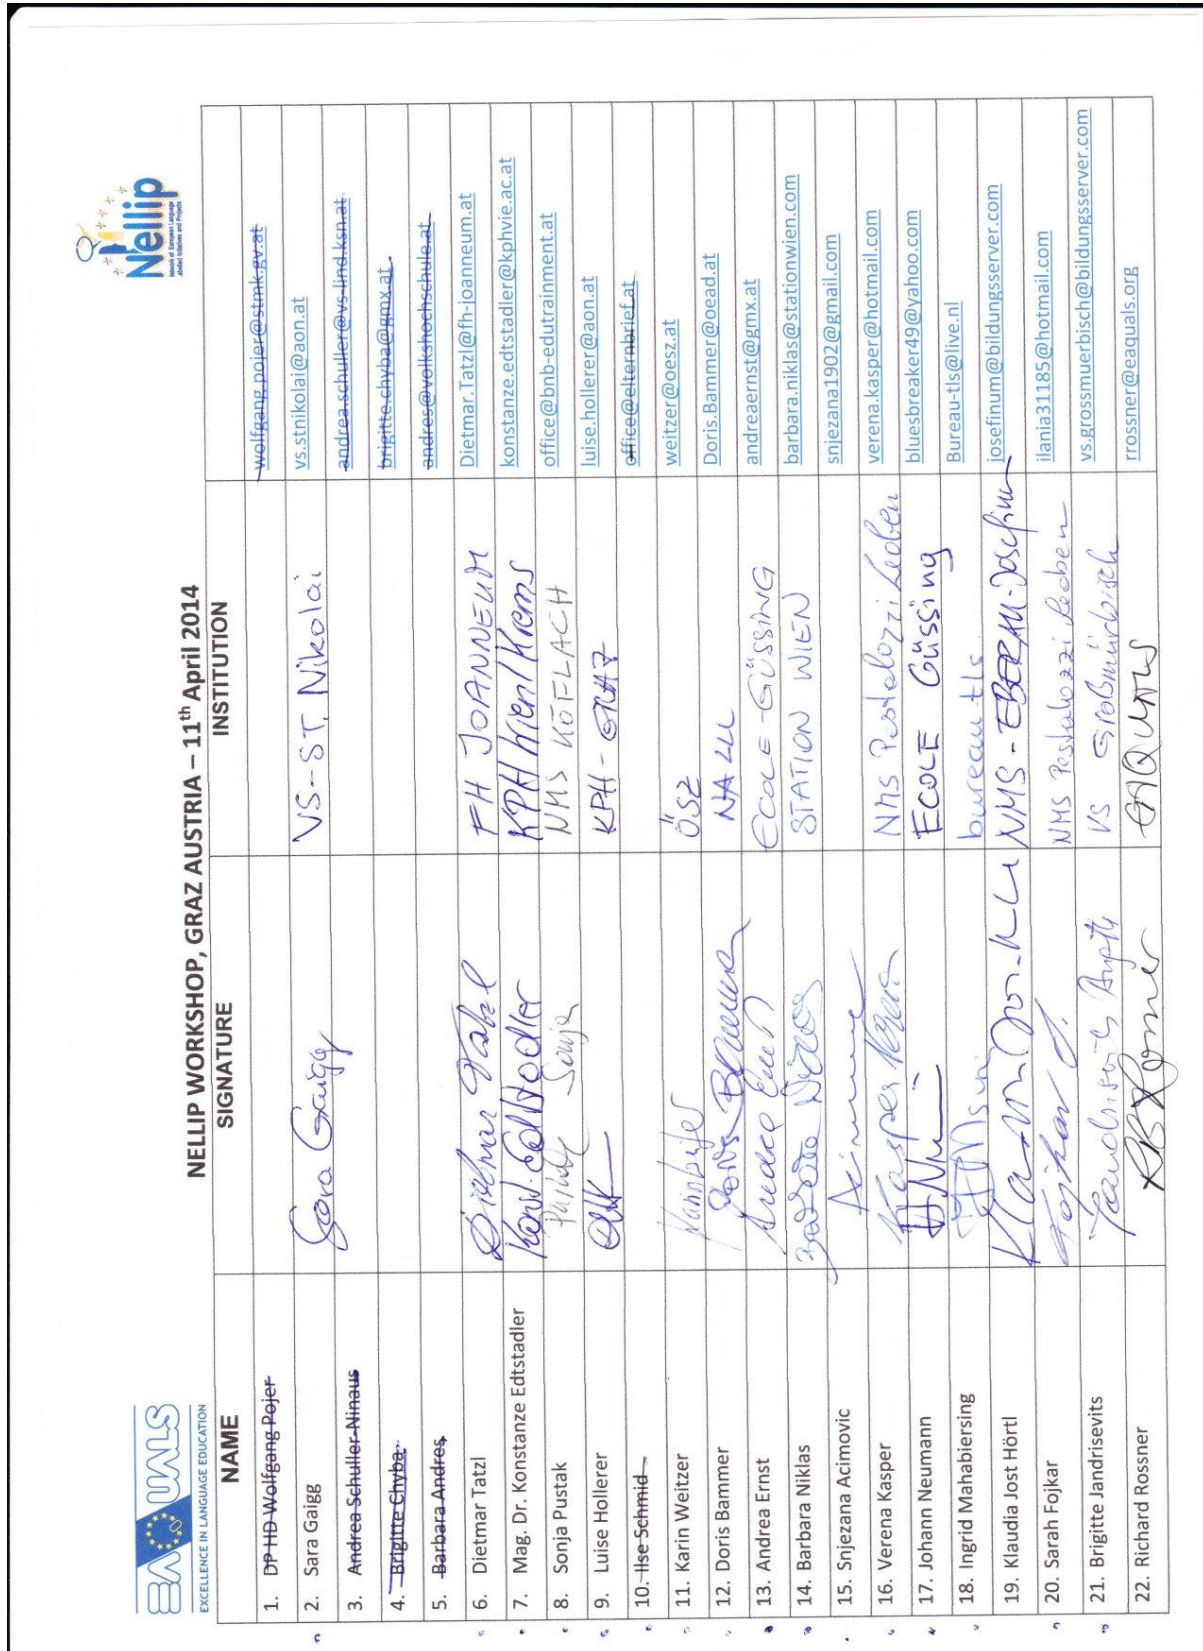 EAQUALS
EXCELLENCE IN LANGUAGE EDUCATION
Nellip
Network of European Language
Labelled Initiatives and Projects
NELLIP WORKSHOP, GRAZ AUSTRIA – 11th April 2014
NAME SIGNATURE INSTITUTION
1. DP HD Wolfgang Pojer wolfgang.pojer@stmk.gv.at
2. Sara Gaigg Sara Gaigg VS-ST. Nikolai vs.stnikolai@aon.at
3. Andrea Schuller-Ninaus andrea.schuller@vs-lind.ksn.at
4. Brigitte Chyba brigitte.chyba@gmx.at
5. Barbara Andres andres@volkshochschule.at
6. Dietmar Tatzl Dietmar Tatzl FH JOANNEUM Dietmar.Tatzl@fh-joanneum.at
7. Mag. Dr. Konstanze Edtstadler Konst. Edtstadler KPH Wien/Krems konstanze.edtstadler@kphvie.ac.at
8. Sonja Pustak Sonja NMS KÖFLACH office@bnb-edutrainment.at
9. Luise Hollerer KPH-GRAZ luise.hollerer@aon.at
10. Ilse Schmid office@elternbrief.at
11. Karin Weitzer ÖSZ weitzer@oesz.at
12. Doris Bammer Doris Bammer NALLL Doris.Bammer@oead.at
13. Andrea Ernst Andrea Ernst ECOLE-GÜSSING andreaernst@gmx.at
14. Barbara Niklas Barbara Niklas STATION WIEN barbara.niklas@stationwien.com
15. Snjezana Acimovic snjezana1902@gmail.com
16. Verena Kasper Kasper NMS Pestalozzi Leoben verena.kasper@hotmail.com
17. Johann Neumann ECOLE Güssing bluesbreaker49@yahoo.com
18. Ingrid Mahabiersing bureau tls Bureau-tls@live.nl
19. Klaudia Jost Hörtl NMS-EBERAU-Josefinum josefinum@bildungsserver.com
20. Sarah Fojkar Fojkar S. NMS Pestalozzi Leoben ilania31185@hotmail.com
21. Brigitte Jandrisevits VS Großmürbisch vs.grossmuerbisch@bildungsserver.com
22. Richard Rossner Rossner EAQUALS rrossner@eaquals.org